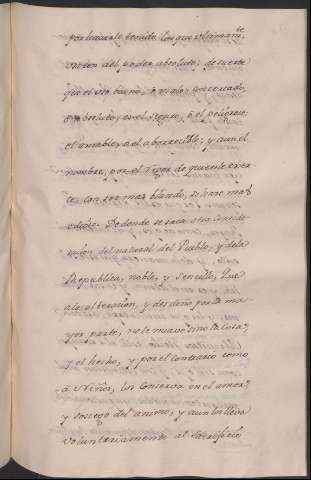 por haverle tenido los que ultimamte
usaron del poder absoluto; de suerte
que el uso bueno, ò malo; concertado,
ò absoluto, es el seguro, ò el peligroso;
el amable, ò el aborrecible; y aun el
nombre, por el rigor de quien le exer
ta, con ser mas blando, se hace mas
odioso. De donde se saca otra conside
racion del natural del Pueblo, y de la
Republica, noble, y sencillo, que
à la alteracion, y desdeño por la ma
yor parte, no le mueve sino la cosa,
y el hecho, y por el contrario como
à Niños, los conserva en el amor,
y sosiego del animo, y aun los lleva
voluntariamente al sacrificio